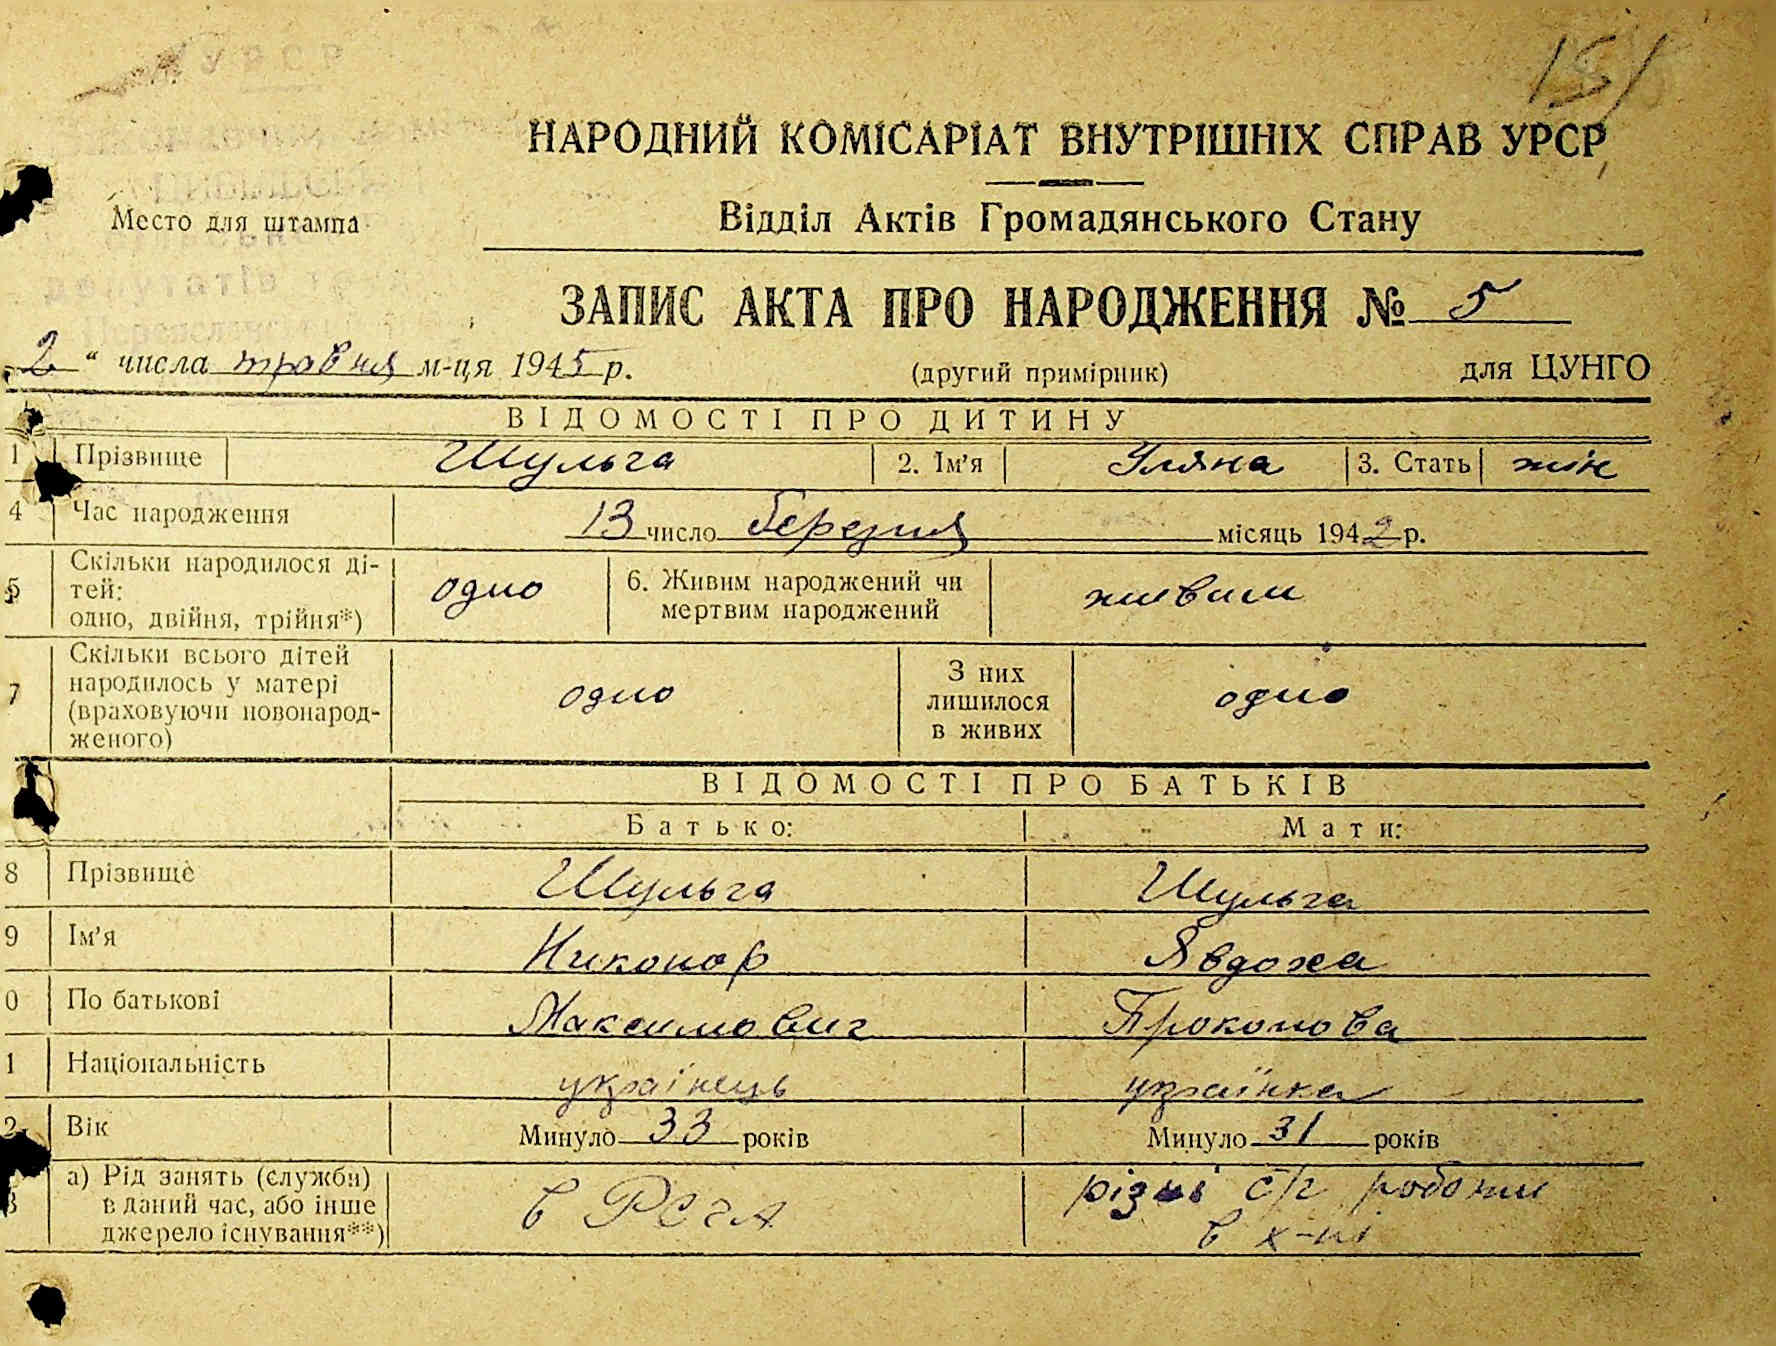 151
УРСР
НАРОДНИЙ КОМІСАРІАТ ВНУТРІШНІХ СПРАВ УРСР
Место для штампа
Відділ Актів Громадянського Стану
депутатів
ЗАПИС АКТА ПРО НАРОДЖЕННЯ № 5
2 “ числа травня м-ця 1945 р. (другий примірник) для ЦУНГО
ВІДОМОСТІ ПРО ДИТИНУ
1 Прізвище Шульга 2. Ім'я Уляна 3. Стать жін
4 Час народження 13 число березня місяць 1942 р.
5 Скільки народилося ді-
тей:
одно, двійня, трійня*) одно 6. Живим народжений чи
мертвим народжений живим
7 Скільки всього дітей
народилось у матері
(враховуючи новонарод-
женого) одно З них
лишилося
в живих одно
ВІДОМОСТІ ПРО БАТЬКІВ
Батько: Мати:
8 Прізвище Шульга Шульга
9 Ім'я Никонор Явдоха
0 По батькові Максимович Прокопова
1 Національність українець українка
2 Вік Минуло 33 років Минуло 31 років
3 а) Рід занять (служби)
в даний час, або інше
джерело існування**) в РСЧА різні с/г роботи
в х-ні